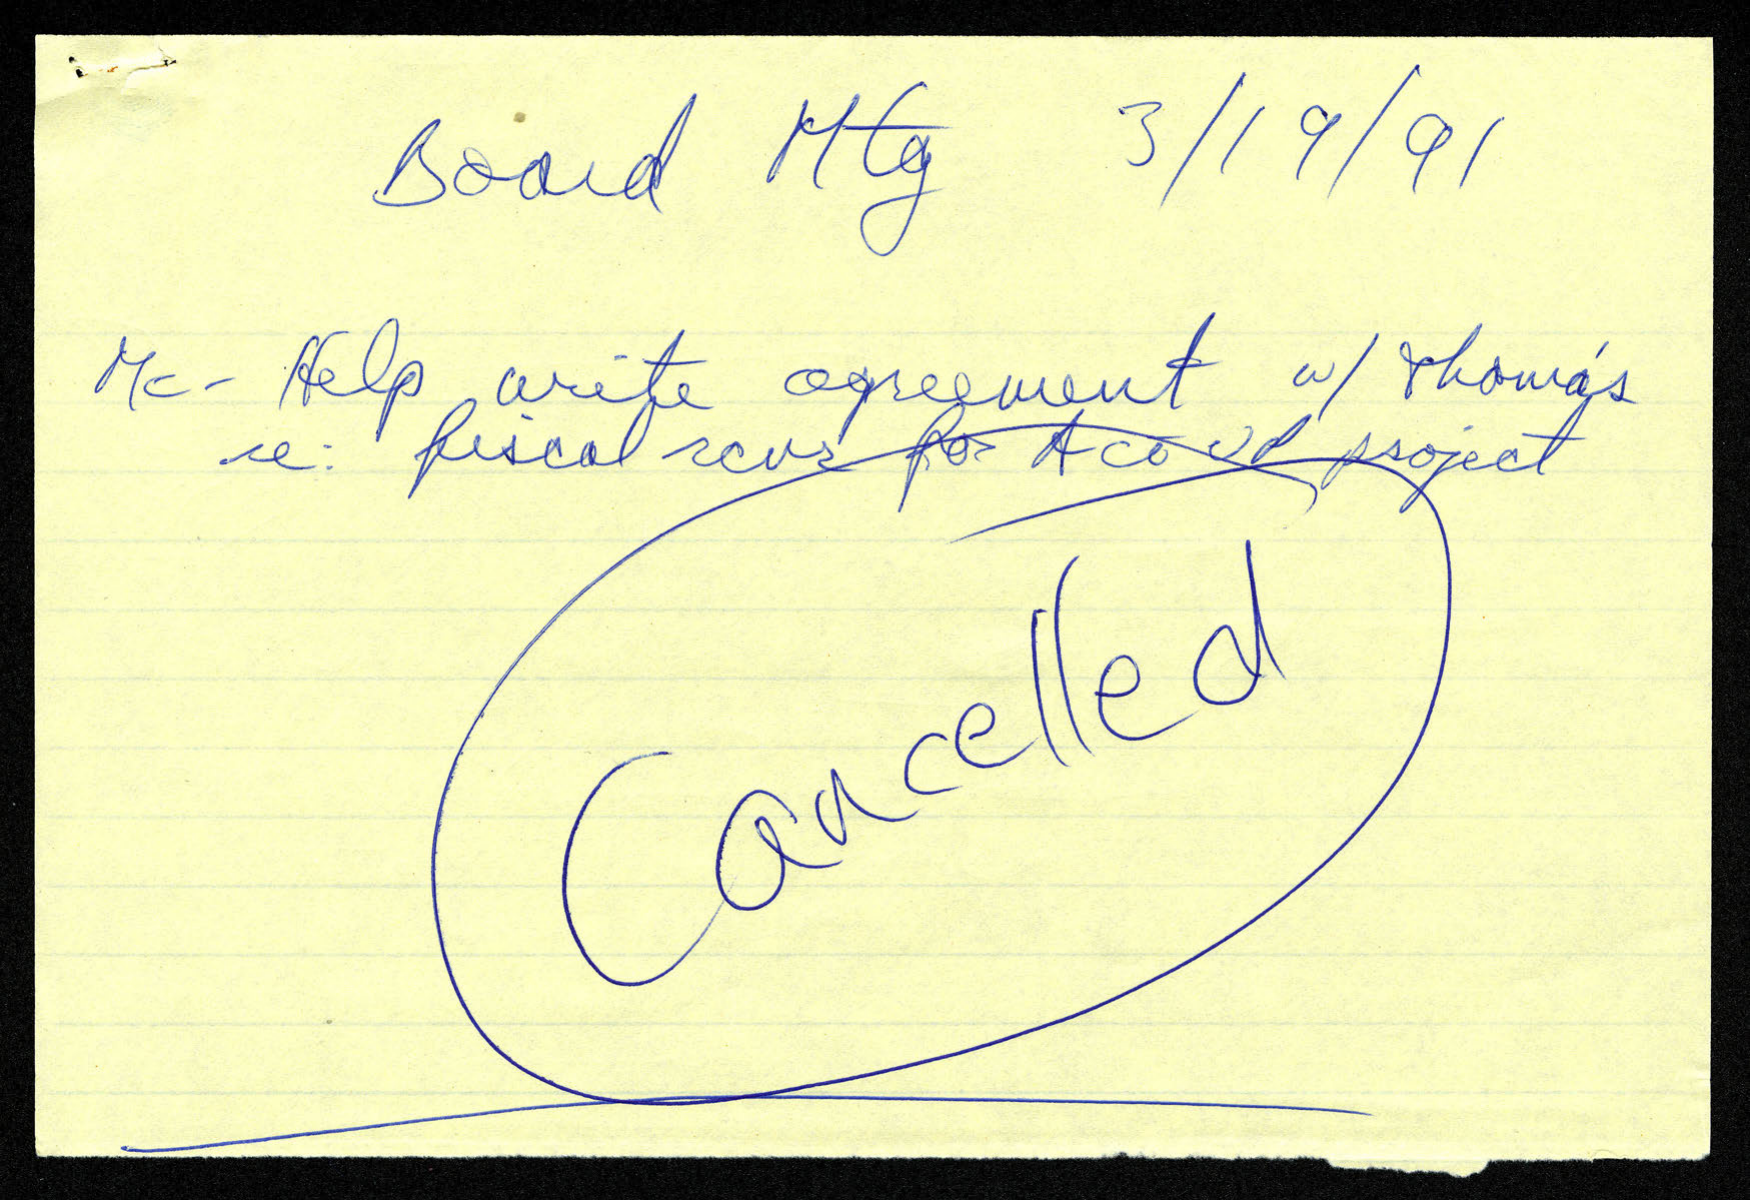 Board Mtg 3/19/91
Mc- Help write agreement w/ Thomas
re: fiscal rcvr for project
Cancelled